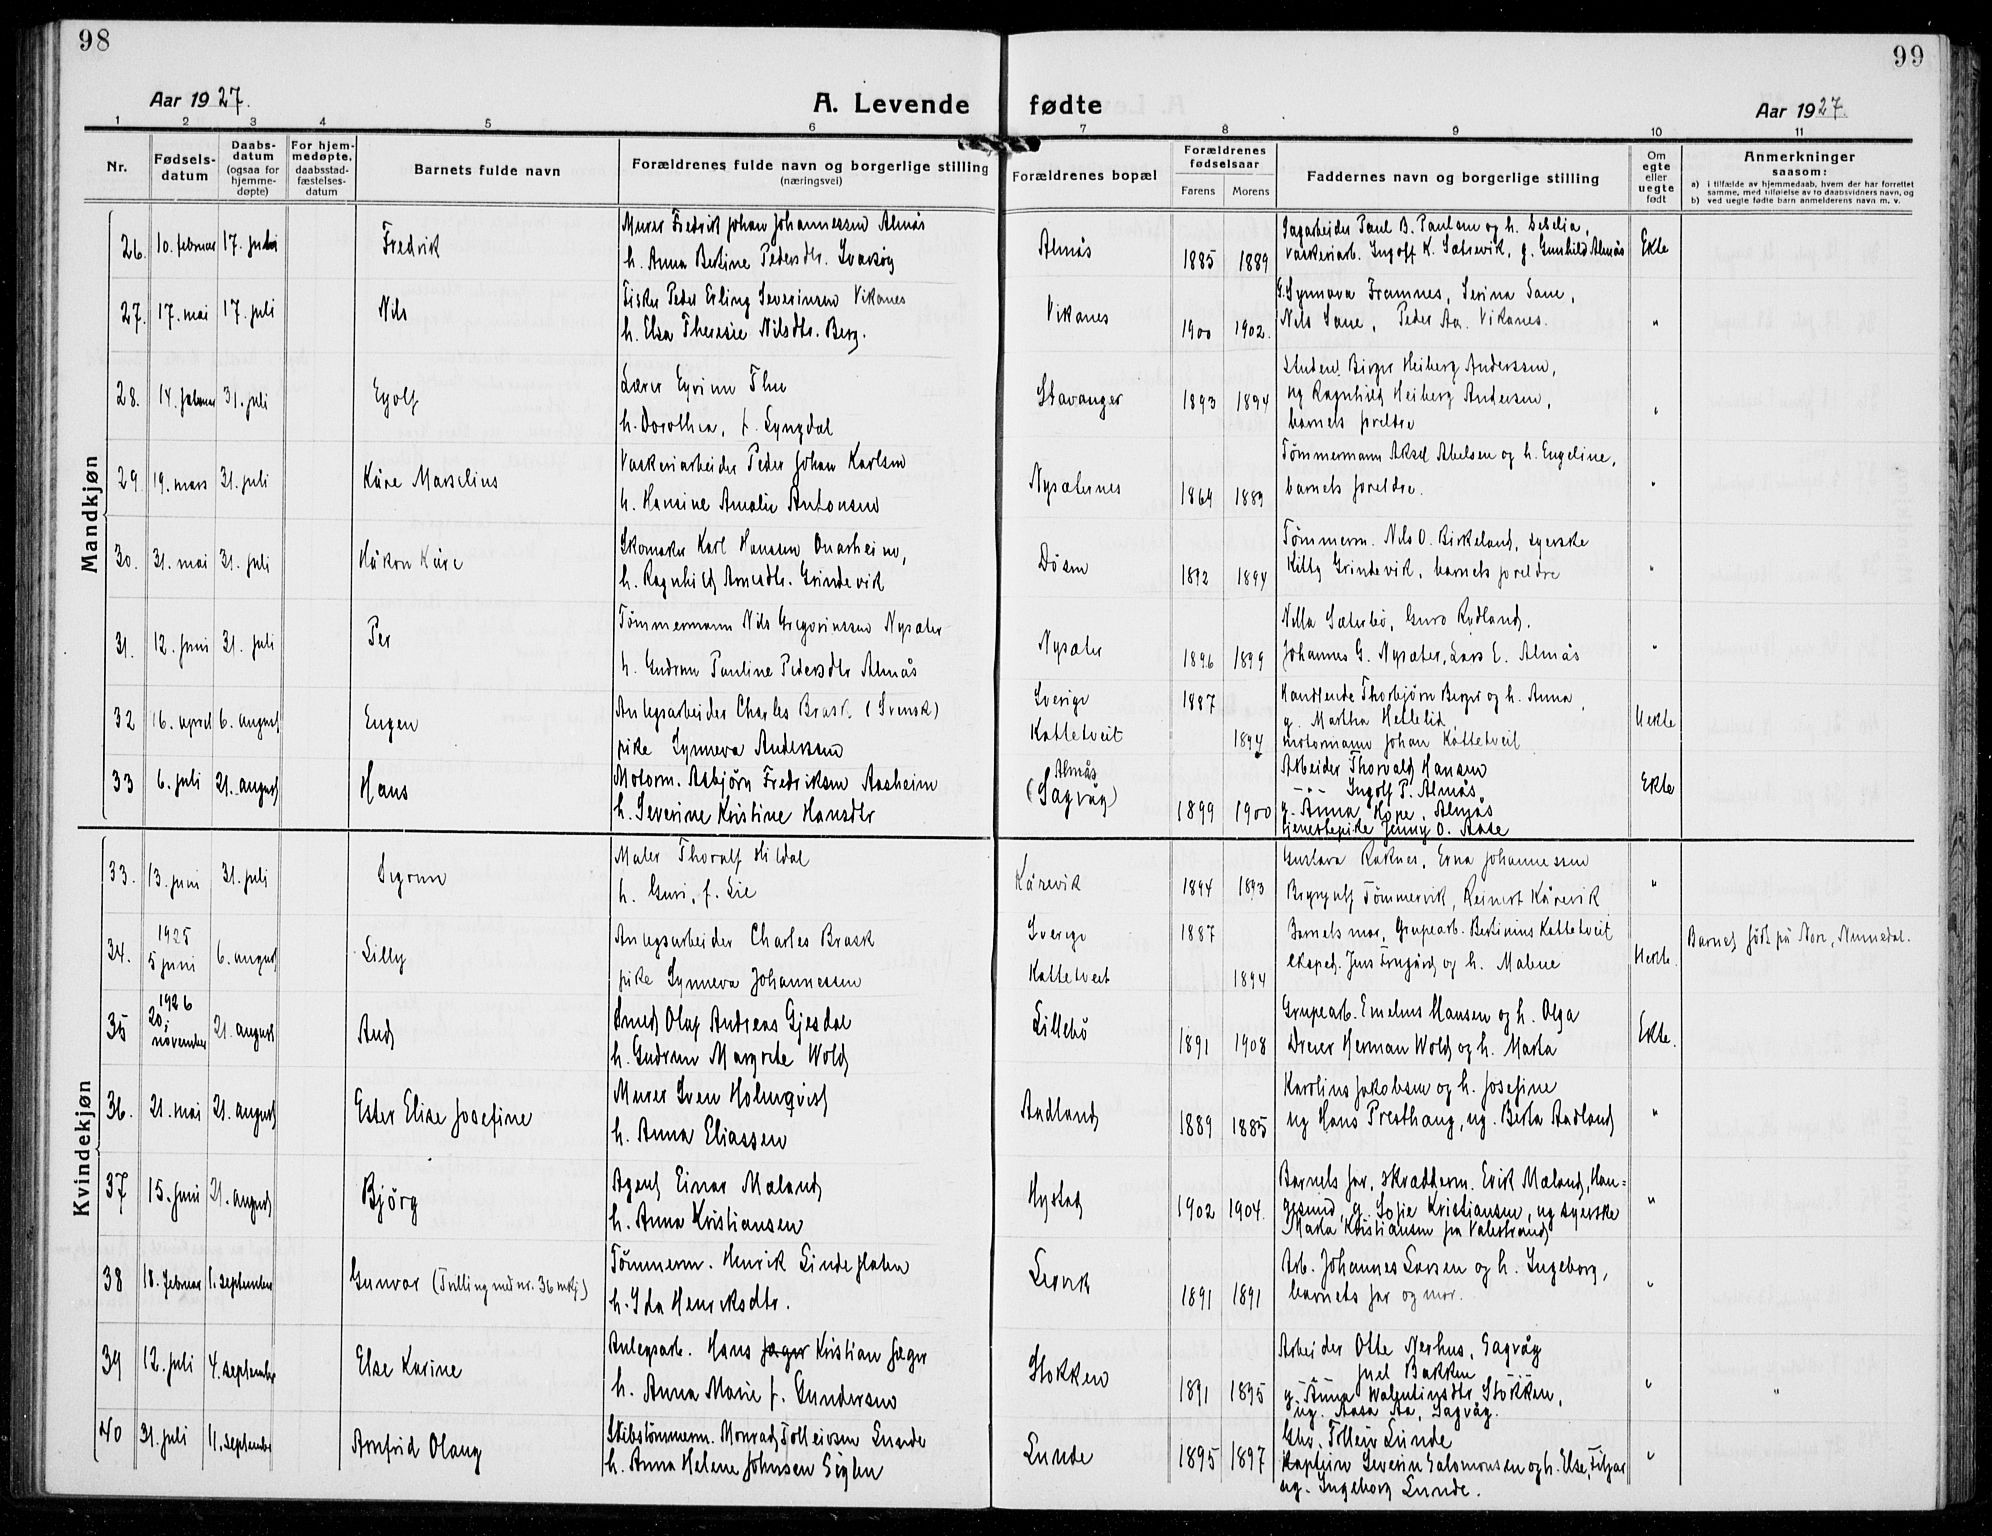 98
99
Aar 1927.
A. Levende fødte
Aar 1927.
1 2 3 4 5 6 7 8 9 10 11
Nr.
Fødselsdatum
Daabsdatum (ogsaa for hjemmedøpte)
For hjemmedøpte, daabsstadfæstelsesdatum
Barnets fulde navn
Forældrenes fulde navn og borgerlige stilling (næringsvei)
Forældrenes bopæl
Forældrenes fødselsaar
Farens Morens
Faddernes navn og borgerlige stilling
Om egte eller uegte født
Anmerkninger saasom:
a) i tilfælde av hjemmedaab, hvem der har forrettet samme, med tilføielse av to daabsvidners navn, og
b) ved uegte fødte barn anmelderens navn m. v.
Mandkjøn
26. 10. februar 17. juli Fredrik
Murer Fredrik Johan Johannessen Almås
h. Anna Bertine Pedersdtr. Svarsøy
Almås 1885 1889
Sagarbeider Paul B. Paulsen og h.
Vaskeriarb. Ingolf K. Sætrevik, g. Gunhild Almås
Ekte
27. 17. mai 17. juli Nils
Fisker Peder Erling Severinsen Vikanes
h. Elsa Theresie Nilsdtr. Berg.
Vikanes 1900 1902.
G. Synnøva Framnes, Serina Sane,
Nils Sane, Peder Aa. Vikanes.
"
28. 14. februar 31. juli Eyolf
Lærer Eyvinn Thu
h. Dorothea, f. Lyngdal
Stavanger 1893 1894
Student Birger Heiberg Anderssen,
ug Ragnhild Heiberg Andersen,
barnets foreldre
"
29. 19. mars 31. juli Kåre Marselius
Vaskeriarbeider Peder Johan Karlsen
h. Hansine Amalie Antonsen
Nysæternes 1864 1883
Tømmermann Aksel Abelsen og h. Engeline,
barnets foreldre.
"
30. 31. mai 31. juli Håkon Kåre
Skomaker Karl Hansen Onarheim,
h. Ragnhild Arnesdtr. Grindevik
Døsen 1892 1894
Tømmerm. Nils O. Birkeland, syerske
Kitty Grindevik, barnets foreldre
"
31. 12. juni 31. juli Per
Tømmermann Nils Gregoriussen Nysæter
h. Gudrun Pauline Pedersdtr Almås
Nysæter 1896 1899
Nella Sæterbø, Guro Rydland.
Johannes G. Nysæter, Lars E. Almås
"
32 16. april 6. august Eugen
Anlegsarbeider Charles Brask (Svensk)
pike Synneva Anderssen
Sverige 1887
Kattetveit 1894
Handlende Thorbjørn Berger og h. Anna,
g. Martha Hettelid,
motormann Johan Kattetveit
Uekte
33 6. juli 21. august Hans
Motorm. Asbjørn Fredriksen Aasheim
h. Severine Kristine Hansdtr
Almås
(Sagvåg) 1899 1900
Arbeider Thorvald Hansen
- " - Ingolf P. Almås,
g. Anna Hope, Almås
tjenestepike Jenny O. Aase
Ekte
Kvindekjøn
33. 13. juni 31. juli Sigrun
Maler Thoralf Hildal
h. Guri, f. Lie
Kårevik 1894 1893
Gustava Raknes, Erna Johannessen
Brynjulf Tømmervik, Reinert Kårevik
"
34. 1925 5 juni 6. august Lilly
Anlegsarbeider Charles Brask
pike Synneva Johannessen
Sverige 1887
Kattetveit 1894
Barnets mor, Grupearb. Bertinius Kattetveit
eksped. Jens og h. Malene
Uekte.
Barnet født på Nore, Numedal.
35 1926 20. november 21. august Aud
Smed Olaf Andreas Gjesdal
h. Gudrun Margrete Wold
Lillebø 1891 1908
Grupearb. Emelius Hansen og h. Olga
Dreier Herman Wold og h. Marta
Ekte.
36. 21. mai 21. august Ester Elise Josefine
Murer Sven Holmqvist
h. Anna Eliassen
Aadland 1889 1885
Karolius Jakobsen og h. Josefine
ug Hans Presthaug, ug. Berta Aadland
"
37 15. juni 21. august Bjørg
Agent Einar Mæland
h. Anna Kristiansen
Hystad 1902 1904.
Barnets far, skræddherm. Erik Mæland, Hau-
gesund, g. Sofie Kristiansen, ug syerske
Marta Kristiansen fra Valestrand
"
38 18. februar 1. september Gunvor (Tvilling med nr. 36 mkj)
Tømmerm. Henrik Lindeflaten
h. Ida Henriksdtr.
Lervik 1891 1891
Arb. Johannes Larsen og h. Ingeborg,
barnets far og mor.
"
39 12. juli 4. september Else Karine
Anlegsarb. Hans Jæger Kristian Jæger
h. Anna Marie f. Gundersen
Stokken 1891 1895
Arbeider Otte Nerhus, Sagvåg
- " - Juel Bakken
g. Anna Valentinsdtr Stokken,
ug. Aasa Aa, Sagvåg.
" "
40 31. juli 11. september Arnfrid Olaug
Skibstømmerm. Monrad Tolleivsen Lunde
h. Anna Helene Johnsen Siglen
Lunde 1895 1897
Gbr. Tolleiv Lunde
Kaptein Severin Salomonsen og h. Else, Fitjar
ug. Ingeborg Lunde.
"